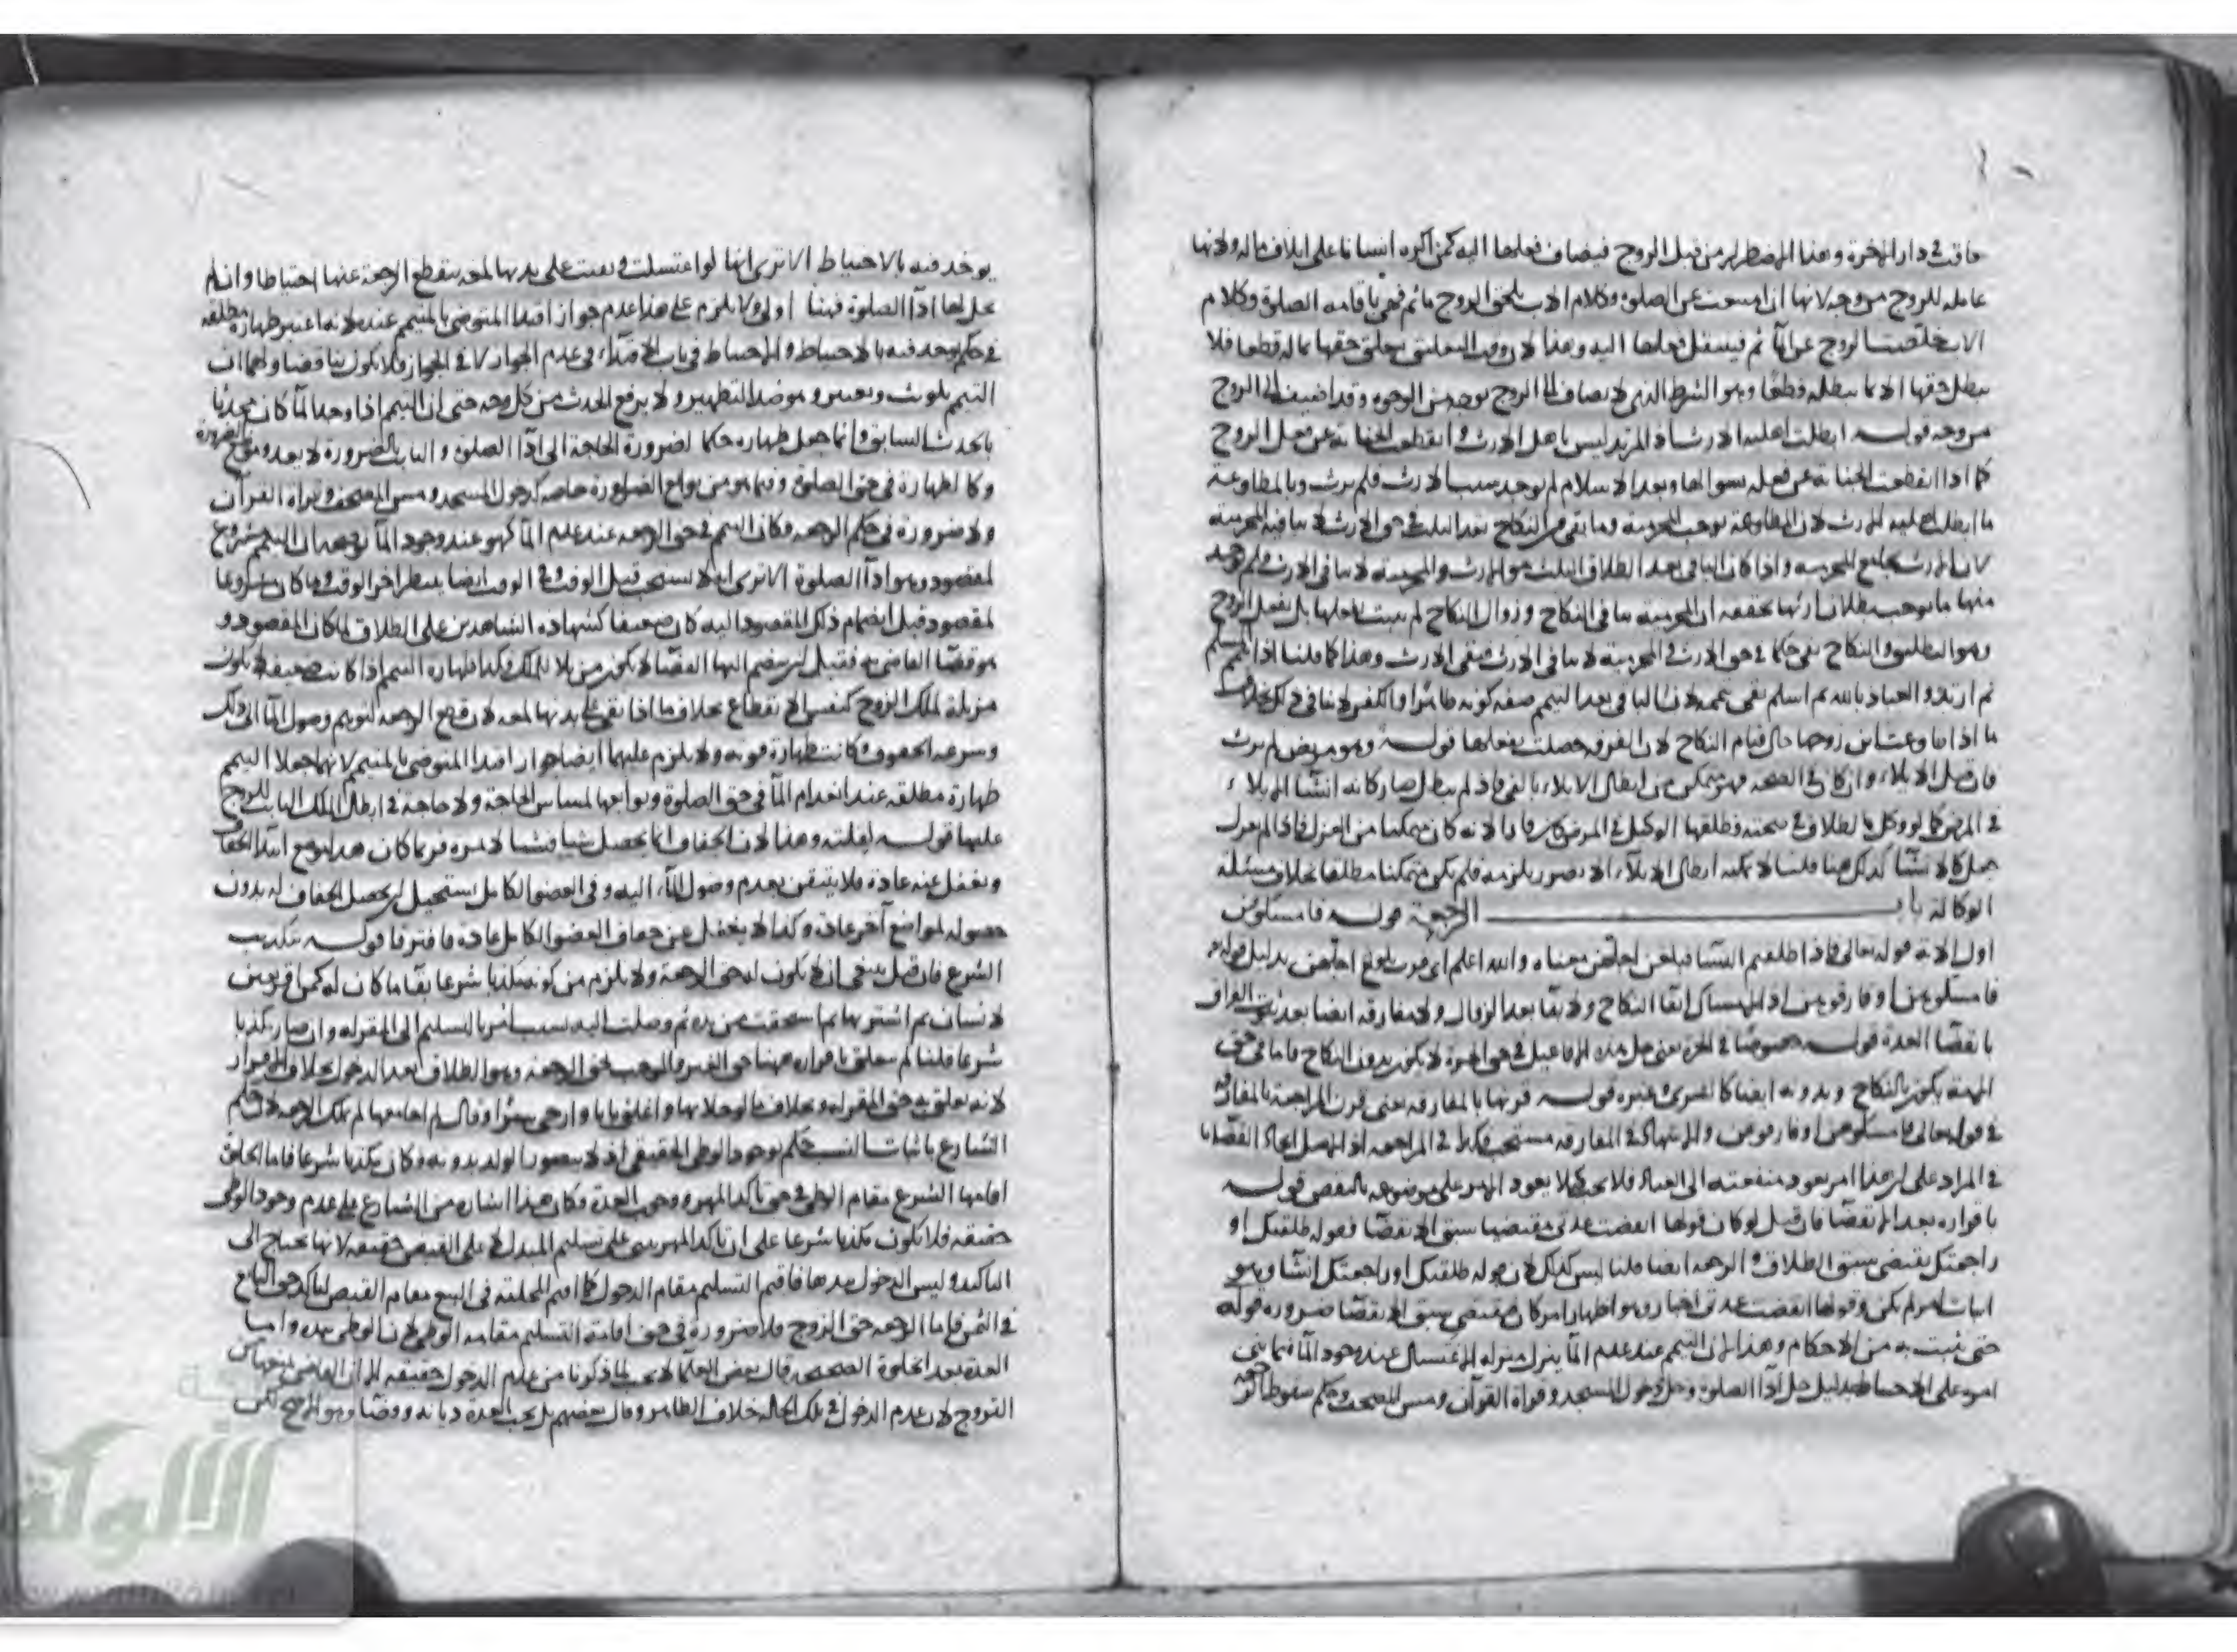 عاقبة في دار الآخرة وهذا الاضطرار من قبل الزوج فيضاف فعلها اليه كمن اكره انسانا على اتلاف ماله ولانها
عاملة للزوج من وجه لانها ان امتنعت عن الصلوة وكلام الاب يلحق الزوج ماثم فهي باقامة الصلوة وكلام
الاب خلصت الزوج عن المأثم فينتقل فعلها اليه وهذا لان وقت التعليق تعلق حقها بماله قطعا فلا
يبطل حقها الا بما يبطله قطعا وهو الشرط الذي لا يضاف الى الزوج بوجه من الوجوه وقد اضيف الى الزوج
من وجه قوله ابطلت اهلية الارث اذ المرتد ليس باهل الارث وانقطعت الجناية عن فعل الزوج
كما اذا انقطعت الجناية عن فعله بسوالها وبعد الاسلام لم يوجد سبب الارث فلم يرث وبالمطاوعة
ما ابطلت اهلية الارث لان المطاوعة توجب المحرمية وما بقي من النكاح بعد الثلث في حق الارث لا ينافيه المحرمية
لان الارث يجامع المحرمية واذا كان الباقي بعد الطلاق الثلث هو الارث والمحرمية لا ينافي الارث ولم يوجد
منها ما يوجب بطلان ارثها تحققه ان المحرمية تنافي النكاح وزوال النكاح لم يثبت بفعلها بل بفعل الزوج
وهو التطليق والنكاح بقي حكما في حق الارث والمحرمية لا تنافي الارث فبقي الارث وهذا كما قلنا اذا تيمم المسلم
ثم ارتد والعياذ بالله ثم اسلم بقي تيممه لان الباقي بعد التيمم صفة كونه طاهرا والكفر لا ينافي ذلك بخلاف
ما اذا طاوعت ابن زوجها حال قيام النكاح لان الفرقة حصلت بفعلها قوله وهو مريض لم يرث
فان قيل الايلاء وان كان في الصحة فهو متمكن من ابطال الايلاء بالفئ فاذا لم يبطل صار كانه انشأ الايلاء
في المرض كما لو وكل بالطلاق في صحته وطلقها الوكيل في المرض كان فارا لانه كان متمكنا من العزل فاذا لم يعزل
جعل كالانشأ كذلك هنا قلنا لا يمكنه ابطال الايلاء الا بضرر يلزمه فلم يكن متمكنا مطلقا بخلاف مسئلة
الوكالة باب الرجعة قوله فامسكوهن
اول الاية قوله تعالى فاذا طلقتم النسأ فبلغن اجلهن معناه والله اعلم اي قرب بلوغ اجلهن بدليل قوله
فامسكوهن او فارقوهن اذ الامساك ابقأ النكاح ولا بقأ بعد الزوال ولا مفارقة ايضا بعد ثبوت الفراق
بانقضأ العدة قوله خصوصا في الحرة يعني حل هذه الافاعيل في حق الحرة لا يكون بدون النكاح فاما في حق
الامة يكون بالنكاح وبدونه ايضا كالشرى وغيره قوله قرنها بالمفارقة يعني قرن المراجعة بالمفارقة
في قوله تعالى فامسكوهن او فارقوهن والاشهاد في المفارقة مستحب فكذا في المراجعة
في المراد على ان هذا امر يعود منفعته الى العباد فلا يجب كيلا يعود الامر على موضوعه بالنقض قوله
باقراره بعد الانقضأ فان قيل لو كان قولها انقضت عدتي مقتضيا سبق الانقضأ فقوله طلقتك او
راجعتك يقتضي سبق الطلاق والرجعة ايضا قلنا ليس كذلك لان قوله طلقتك او راجعتك انشأ وهو
اثبات امر لم يكن وقولها انقضت عدتي اخبار وهو اظهار امر كان فيقتضي سبق الانقضأ ضرورة قوله
حتى يثبت به من الاحكام وهذا لان التيمم عند عدم المأ ينزل منزلة الاغتسال عند وجود المأ فيما بني
امره على الاحتياط بدليل حل ادأ الصلوة وحل دخول المسجد وقراة القرآن ومس المصحف وحكم سقوط الرجعة
يوخذ فيه بالاحتياط الا ترى انها لو اغتسلت وبقيت على بدنها لمعة ينقطع الرجعة عنها احتياطا وان لم
يحل لها ادأ الصلوة فهنا اولى ولا يلزم على هذا عدم جواز اقتدأ المتوضي بالمتيمم عنده لانه اعتبر طهارة مطلقة
في حكم يوخذ فيه بالاحتياط والاحتياط في باب الاقتدأ في عدم الجواز لا في الجواز فلا يكون تناقضا ولهما ان
التيمم تلويث وتغبير وهو ضد التطهير ولا يرفع الحدث من كل وجه حتى ان المتيمم اذا وجد المأ كان محدثا
بالحدث السابق وانما جعل طهارة حكما لضرورة الحاجة الى ادأ الصلوة والثابت بالضرورة لا يعدو موضع الضرورة
وكان طهارة في حق الصلوة وفيما هو من توابع الصلوة خاصة كدخول المسجد ومس المصحف وقراة القرآن
ولا ضرورة في حكم الرجعة فكان التيمم في حق الرجعة عند عدم المأ كهو عند وجود المأ توضيحه ان التيمم مشروع
لمقصود وهو ادأ الصلوة الا ترى انه لا يستحب قبل الوقت وفي الوقت ايضا ينتظر اخر الوقت وما كان مشروعا
لمقصود قبل انضمام ذلك المقصود اليه كان ضعيفا كشهادة الشاهدين على الطلاق لما كان المقصود
هو قضأ القاضي به فقبل ان ينضم اليها القضأ لا يكون مزيلا للملك وكذا طهارة التيمم اذا كانت ضعيفة لا يكون
مزيلة لملك الزوج كنفس الانقطاع بخلاف ما اذا بقي على بدنها لمعة لان قطع الرجعة لتوهم وصول المأ الى ذلك
وسرعة الجفوف وكانت طهارة قوية ولا يلزم عليهما ايضا جواز اقتدأ المتوضي بالمتيمم لانهما جعلا التيمم
طهارة مطلقة عند انعدام المأ في حق الصلوة وتوابعها لمساس الحاجة ولا حاجة في ابطال الملك الثابت للزوج
عليها قوله لقلته وهذا لان الجفاف انما يحصل شيأ فشيأ لا بمرة فربما كان هذا موضع ابتدأ الجفاف
ويغفل عنه عادة فلا يتيقن بعدم وصول المأ اليه وفي العضو الكامل يستحيل ان يحصل الجفاف له بدون
حصوله لمواضع اخر عادة وكذا لا يغفل عن جفاف العضو الكامل عادة فافترقا قوله بتكذيب
الشرع فان قيل ينبغي ان لا يكون له حق الرجعة ولا يلزم من كونه مكذبا شرعا بقأ ما كان له كمن اقر بعين
لانسان ثم اشتراها ثم استحقت من يده ثم وصلت اليه بسبب امر بالتسليم الى المقر له وان صار مكذبا
شرعا قلنا لم يتعلق باقراره ههنا حق الغير والموجب لحق الرجعة وهو الطلاق بعد الدخول بخلاف الاقرار
لانه تعلق به حق المقر له وبخلاف ما لو خلا بها واغلق بابا وارخى سترا وقال لم اجامعها لم يملك الرجعة
الشارع باثبات النسب حكم بوجود الوطي الحقيقي اذ لا يتصور الولد بدونه وكان مكذبا شرعا فاما الخلوة
اقامها الشرع مقام الوطي في حق تاكد المهر ووجوب العدة وكان هذا اشارة من الشارع على عدم وجود الوطي
حقيقة فلا يكون مكذبا شرعا على ان تاكد المهر يبتني على تسليم المبدل لا على القبض حقيقة لانها تحتاج الى
التاكيد وليس الدخول بيدها فاقيم التسليم مقام الدخول كما اقيم التخلية في البيع مقام القبض لتاكد حق البائع
في الثمن فاما الرجعة حق الزوج فلا ضرورة في حق اقامة التسليم مقامه لان الوطي بيده واما
العدة بعد الخلوة الصحيحة قال بعض العلمأ لا يجب لما ذكرنا من عدم الدخول حقيقة الا ان القاضي يمنعها من
التزوج لان عدم الدخول في تلك الحالة خلاف الظاهر وقال بعضهم بل يجب العدة ديانة وقضأ وهو الاصح